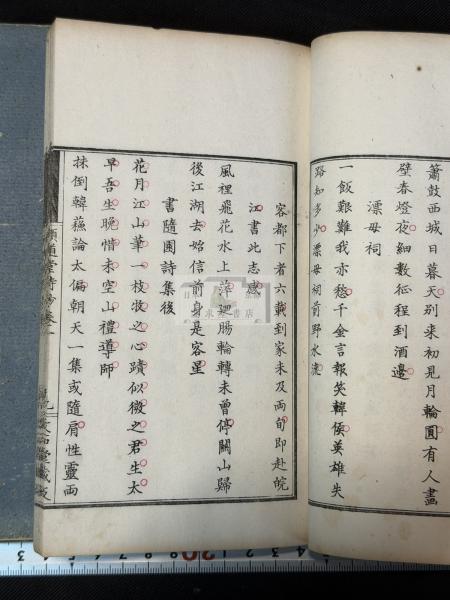 簫鼓西城日暮天別来初見月輪圓有人畫
壁春燈夜細數征程到酒邊
漂母祠
一飯艱難我亦愁千金言報笑韓侯英雄失
路知多少漂母祠前野水流
客都下者六載到家未及兩旬即赴皖
江書此志感
風裡飛花水上萍迴腸輪轉未曾停關山歸
後江湖去始信前身是客星
書隨園詩集後
花月江山筆一枝妝之心蹟似微之君生太
早吾生晚惜未空山禮導師
抹倒韓蘇論太偏朝天一集或隨肩性靈兩
道堂詩鈔卷一
石堂藏板